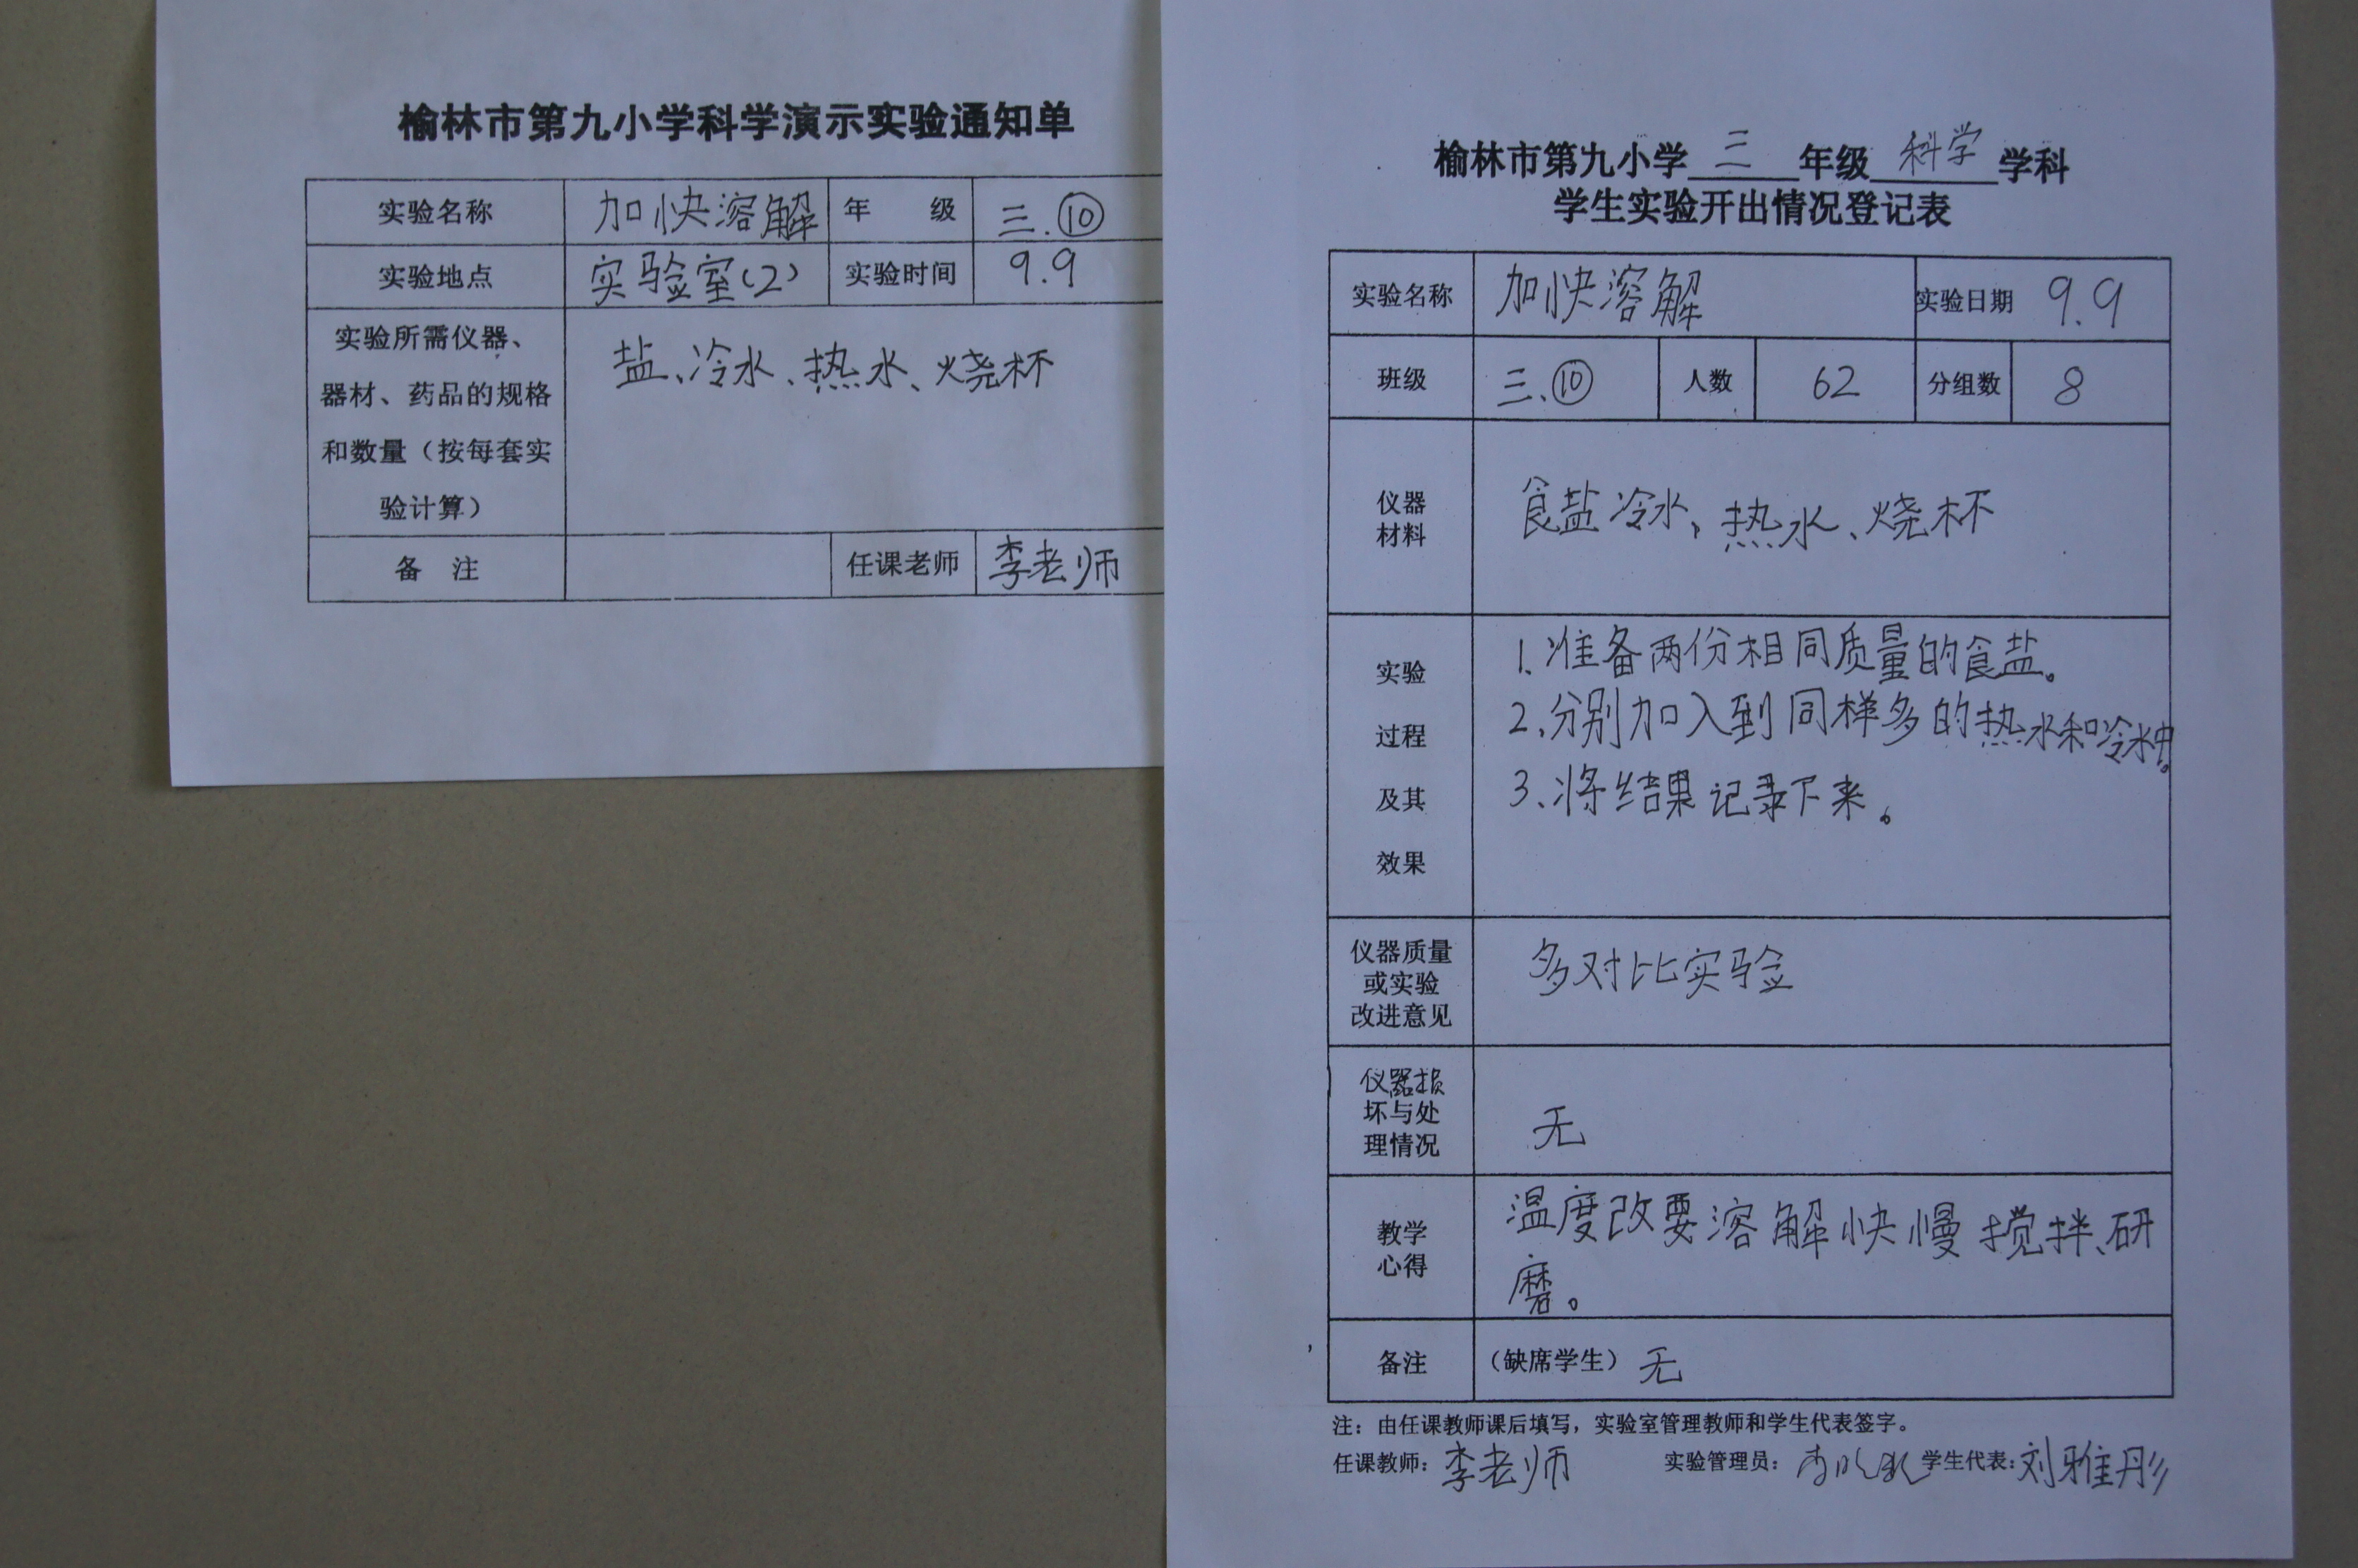 榆林市第九小学科学演示实验通知单
实验名称 加快溶解 年 级 三.⑩
实验地点 实验室(2) 实验时间 9.9
实验所需仪器、
器材、药品的规格
和数量（按每套实
验计算）
盐、冷水、热水、烧杯
备 注 任课老师 李老师
榆林市第九小学 三 年级 科学 学科
学生实验开出情况登记表
实验名称 加快溶解 实验日期 9.9
班级 三.⑩ 人数 62 分组数 8
仪器
材料
食盐冷水、热水、烧杯
实验
过程
及其
效果
1.准备两份相同质量的食盐。
2.分别加入到同样多的热水和冷水中。
3、将结果记录下来。
仪器质量
或实验
改进意见
多对比实验
仪器损
坏与处
理情况
无
教学
心得
温度改要溶解快慢搅拌、研
磨。
备注 （缺席学生） 无
注：由任课教师课后填写，实验室管理教师和学生代表签字。
任课教师：李老师 实验管理员： 学生代表：刘雅彤